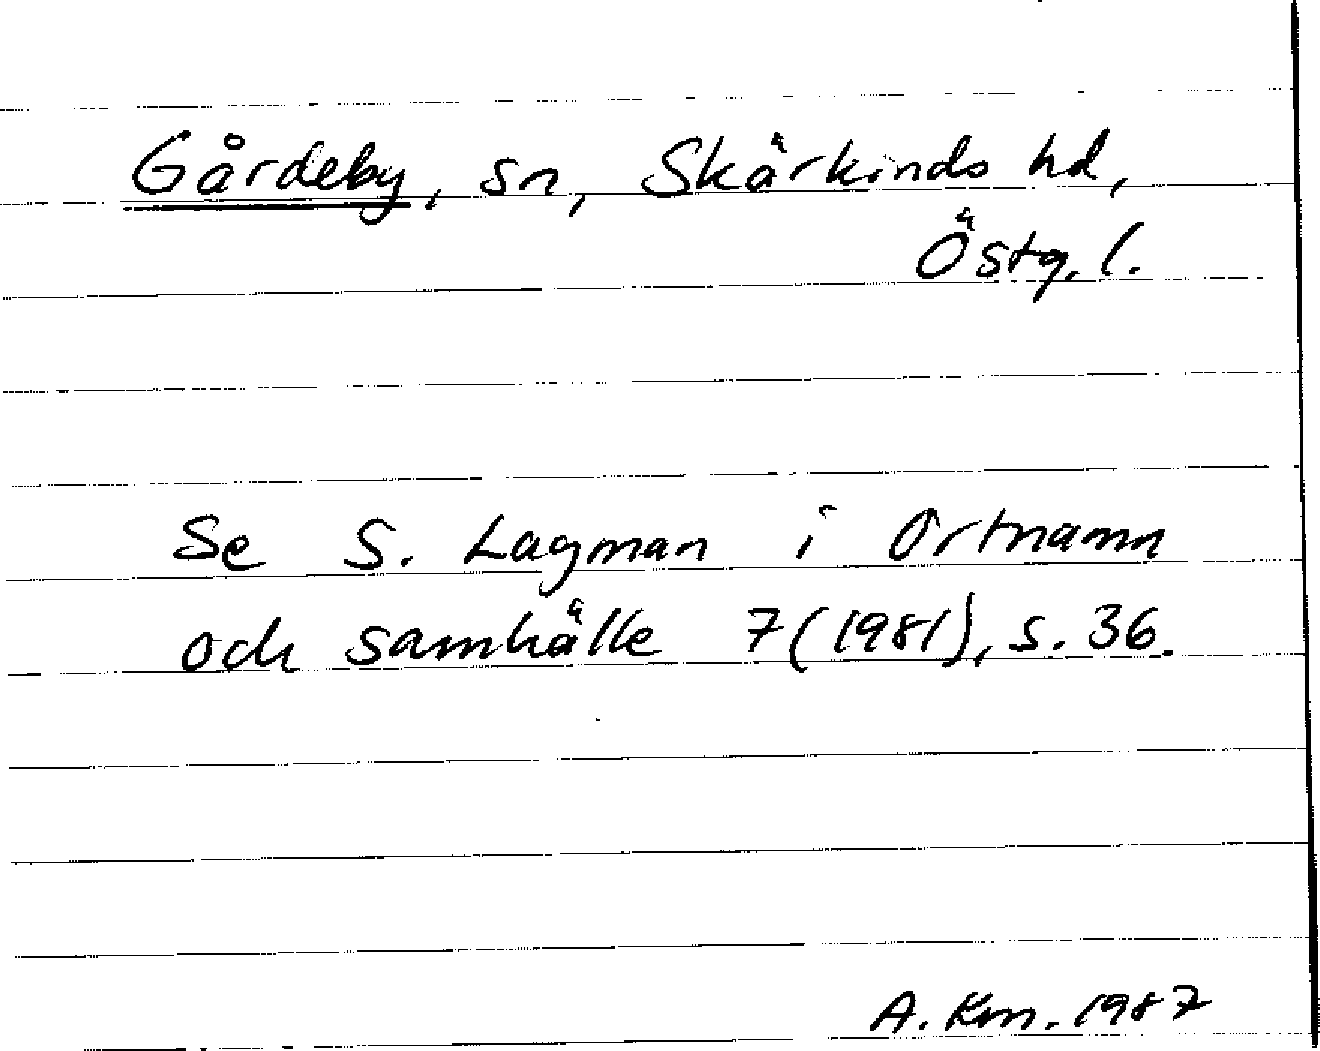 Gårdeby, sn, Skärkinds hd,
Östg. l.
Se S. Lagman i Ortnamn
och samhälle 7 (1981), s. 36.
A. Km. 1987